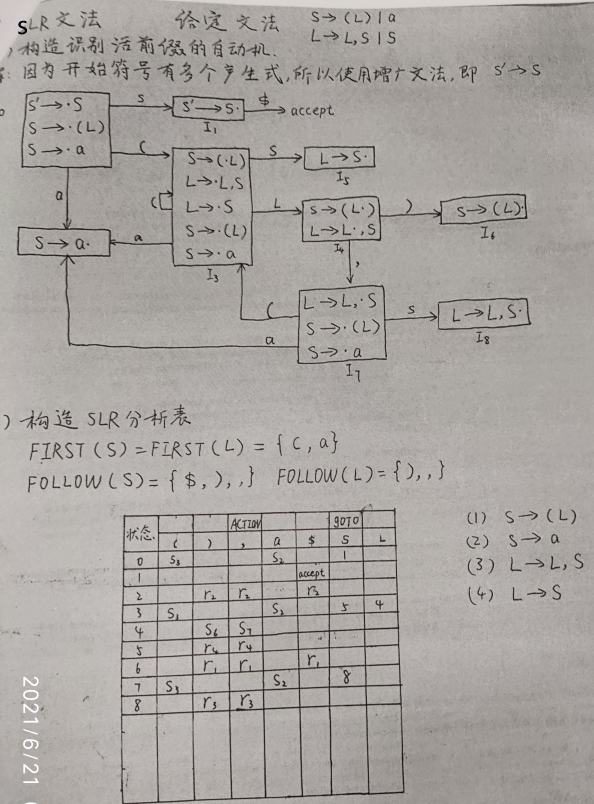 SLR文法 给定文法 S→(L)|a
L→L,S|S
)构造识别活前缀的自动机.
:因为开始符号有多个产生式,所以使用增广文法,即 S'→S
S'→·S
S→·(L)
S→·a
S
S'→S·
I₁
$
accept
(
a
S→a·
a
S→(·L)
L→·L,S
L→·S
S→·(L)
S→·a
I₃
(
S
L→S·
I₅
L
S→(L·)
L→L·,S
I₄
)
S→(L)·
I₆
,
L→L,·S
S→·(L)
S→·a
I₇
(
a
S
L→L,S·
I₈
)构造SLR分析表
FIRST(S)=FIRST(L)={(,a}
FOLLOW(S)={$,),,} FOLLOW(L)={),,}
状态 ACTION GOTO
( ) , a $ S L
0 S₃ S₂ 1
1 accept
2 r₂ r₂ r₂
3 S₃ S₂ 5 4
4 S₆ S₇
5 r₄ r₄
6 r₁ r₁ r₁
7 S₃ S₂ 8
8 r₃ r₃
(1) S→(L)
(2) S→a
(3) L→L,S
(4) L→S
2021/6/21